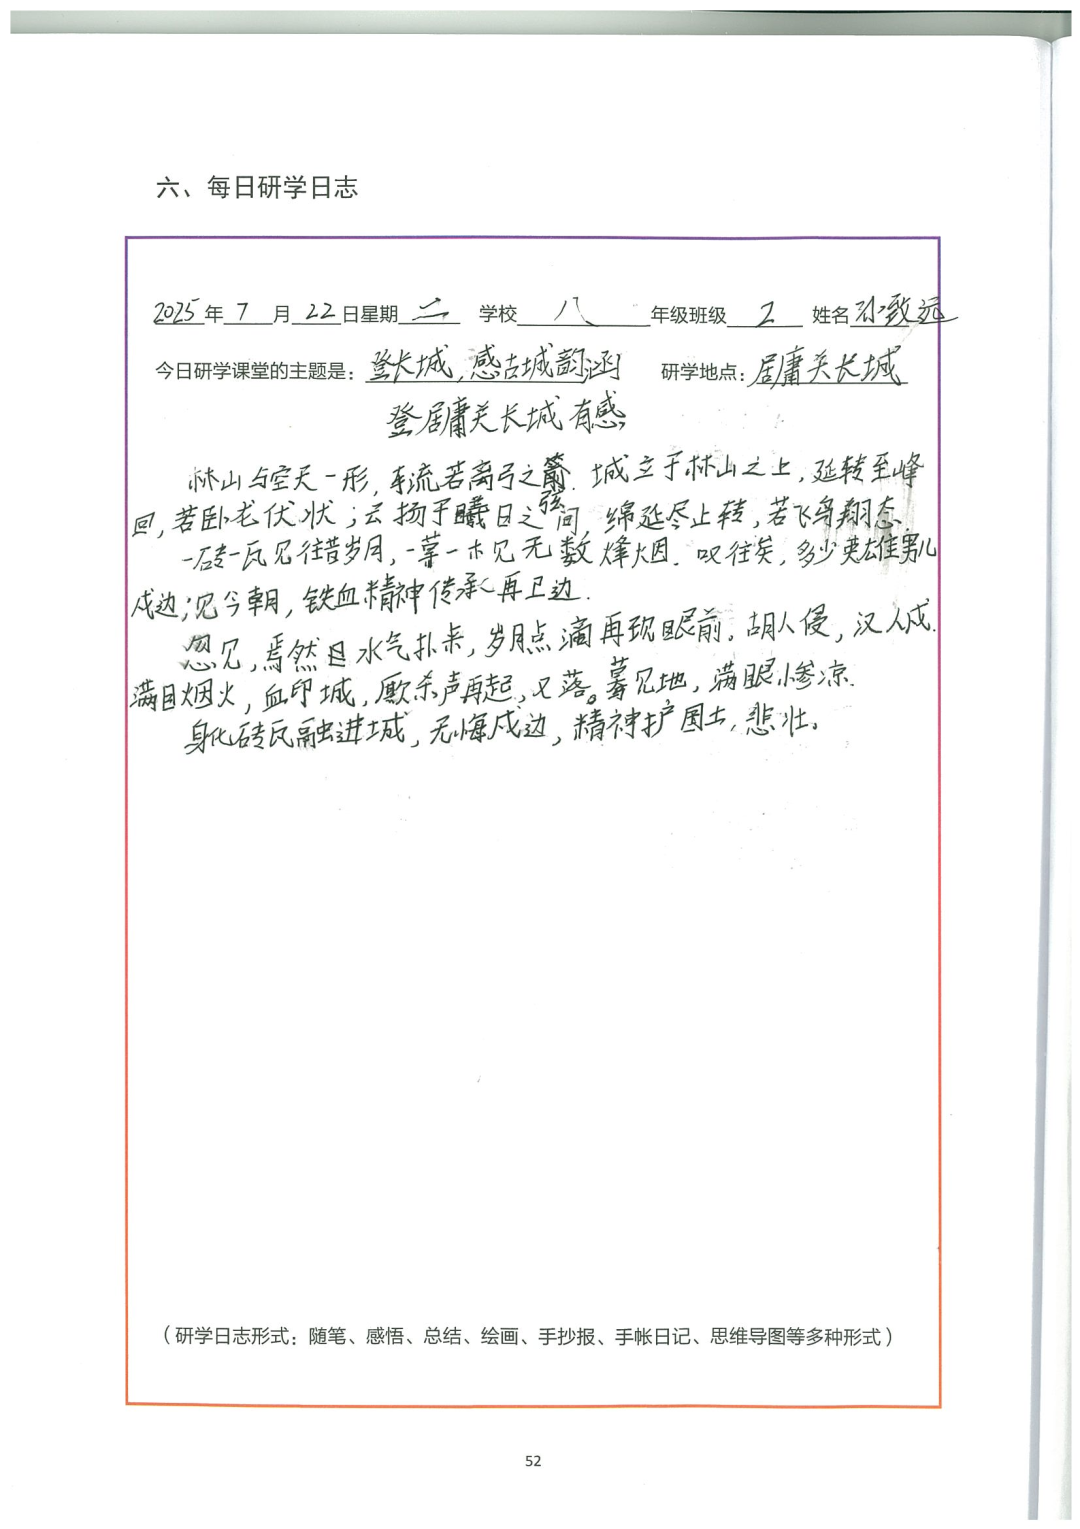 六、每日研学日志
2025年7月22日星期二 学校八年级班级2 姓名孙致远
今日研学课堂的主题是：登长城，感古城韵涵 研学地点：居庸关长城
登居庸关长城有感
林山与空天一形，车流若离弓之箭．城立于林山之上，延转至峰
弦
回，若卧龙伏状；云扬于曦日之间，绵延尽止转，若飞鸟翔态．
一砖一瓦见往昔岁月，一草一木见无数烽烟．叹往矣，多少英雄男儿
戍边；见今朝，铁血精神传承再卫边．
忽见，焉然 水气扑来，岁月点滴再现眼前，胡人侵，汉人戍．
满目烟火，血印城，厮杀声再起，又落。蓦见地，满眼惨凉．
身化砖瓦融进城，无悔戍边，精神护国土，悲壮。
（研学日志形式：随笔、感悟、总结、绘画、手抄报、手帐日记、思维导图等多种形式）
52